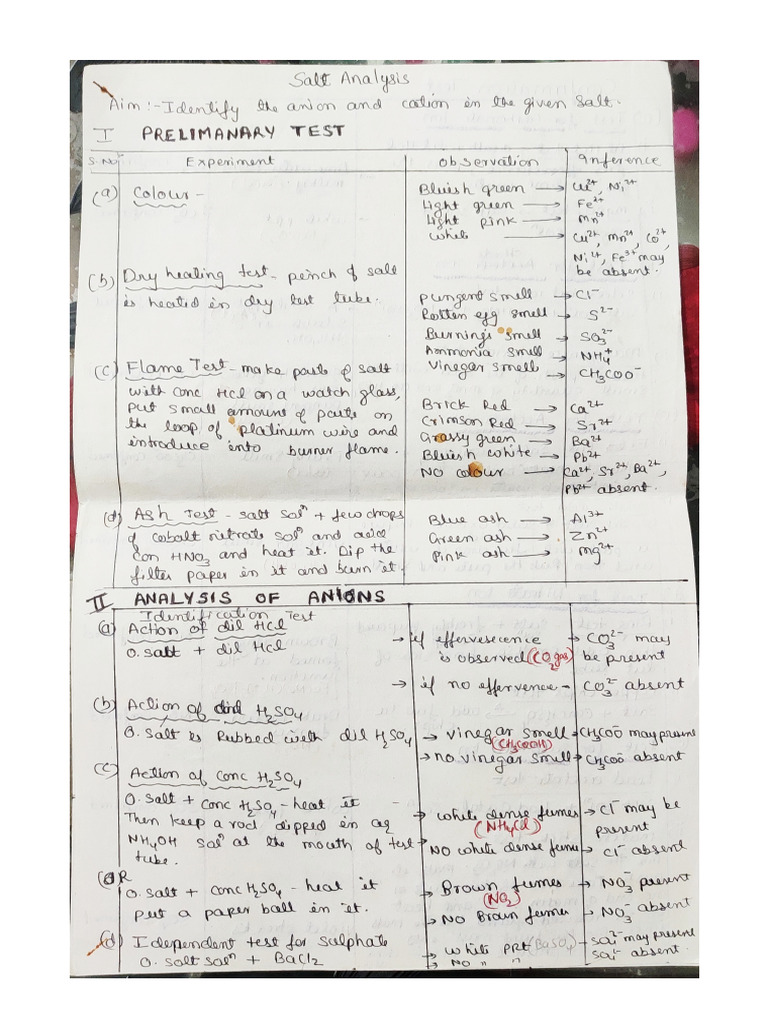 Salt Analysis
Aim :- Identify the anion and cation in the given salt.
I PRELIMANARY TEST
S.NO Experiment Observation Inference
(a) Colour -
Bluish green → Cu²⁺, Ni²⁺
Light green → Fe²⁺
Light pink → Mn²⁺
White → Cu²⁺, Mn²⁺, Co²⁺,
Ni²⁺, Fe³⁺ may
be absent.
(b) Dry heating test - pinch of salt
is heated in dry test tube.
Pungent smell → Cl⁻
Rotten egg smell → S²⁻
Burning's smell → SO₃²⁻
Ammonia smell → NH₄⁺
Vinegar smell → CH₃COO⁻
(c) Flame Test - make paste of salt
with conc HCl on a watch glass,
put small amount of paste on
the loop of platinum wire and
introduce into burner flame.
Brick Red → Ca²⁺
Crimson Red → Sr²⁺
Grassy green → Ba²⁺
Bluish white → Pb²⁺
NO colour → Ca²⁺, Sr²⁺, Ba²⁺,
Pb²⁺ absent.
(d) Ash Test - salt solⁿ + few drops
of cobalt nitrate solⁿ and add
con HNO₃ and heat it. Dip the
filter paper in it and burn it.
Blue ash → Al³⁺
Green ash → Zn²⁺
Pink ash → mg²⁺
II ANALYSIS OF ANIONS
Identification Test
(a) Action of dil HCl
O. salt + dil HCl
→ if effervescence → CO₃²⁻ may
is observed (CO₂ gas) be present
→ if no effervence - CO₃²⁻ absent
(b) Action of dil H₂SO₄
O. salt is Rubbed with dil H₂SO₄
→ vinegar smell → CH₃COO⁻ may present
(CH₃COOH)
→ no vinegar smell → CH₃COO⁻ absent
(c) Action of Conc H₂SO₄
O. salt + conc H₂SO₄ - heat it
Then keep a rod dipped in aq
NH₄OH solⁿ at the mouth of test
tube.
→ white dense fumes → Cl⁻ may be
(NH₄Cl) present
NO white dense fume → Cl⁻ absent
OR
O. salt + Conc H₂SO₄ - heat it
put a paper ball in it.
→ Brown fumes → NO₃⁻ present
(NO₂)
→ No Brown fumes → NO₃⁻ absent
(d) Idependent test for Sulphate
O. salt solⁿ + BaCl₂
→ white PPt (BaSO₄) → SO₄²⁻ may present
→ No " " SO₄²⁻ absent.